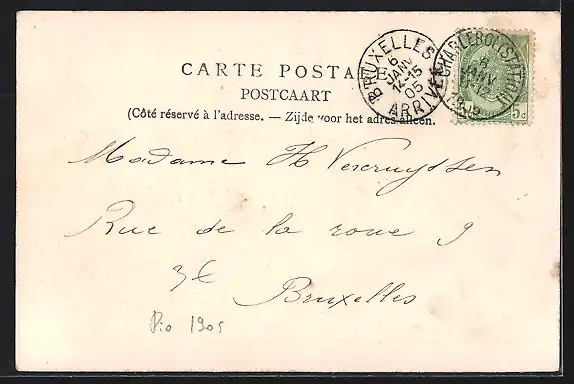 CARTE POSTALE
POSTCAART
(Côté réservé à l'adresse. — Zijde voor het adres alleen.
BRUXELLES
6
JANV
12-15
05
ARRIVEE
CHARLEROI (STATION)
6
JANV
5c
Madame H Vercruyssen
Rue de la roue 9
3€
Bruxelles
Pio 1905